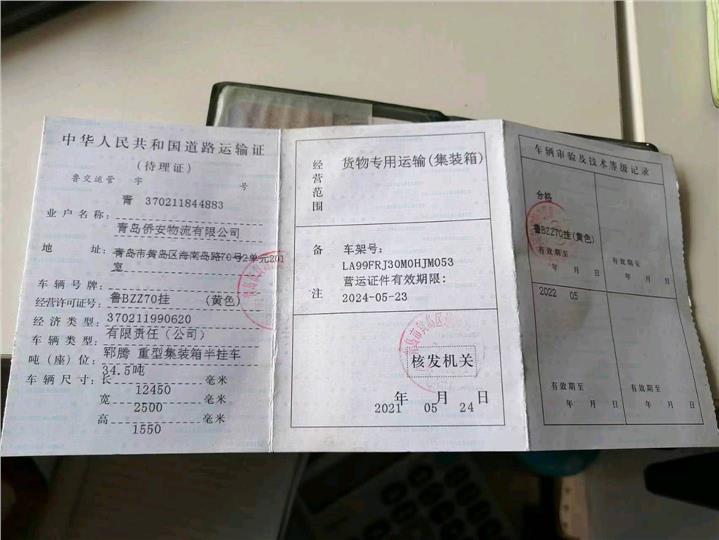 中华人民共和国道路运输证
(待理证)
鲁交运管 字 号
青 370211844883
业户名称:
青岛侨安物流有限公司
地 址:
青岛市黄岛区海南岛路76号2单元201
室
车辆号牌:
鲁BZZ70挂 (黄色)
经营许可证号:
370211990620
经济类型:
有限责任(公司)
车辆类型:
郓腾 重型集装箱半挂车
吨(座)位:
34.5吨
车辆尺寸:长 毫米
12450
宽 毫米
2500
高 毫米
1550
经营范围
货物专用运输(集装箱)
备注
车架号:
LA99FRJ30M0HJM053
营运证件有效期限:
2024-05-23
核发机关
年 月 日
2021 05 24
车辆审验及技术等级记录
合格
鲁BZZ70挂(黄色)
有效期至
年 月 日
有效期至
年 月 日
2022 05
有效期至
年 月 日
有效期至
年 月 日